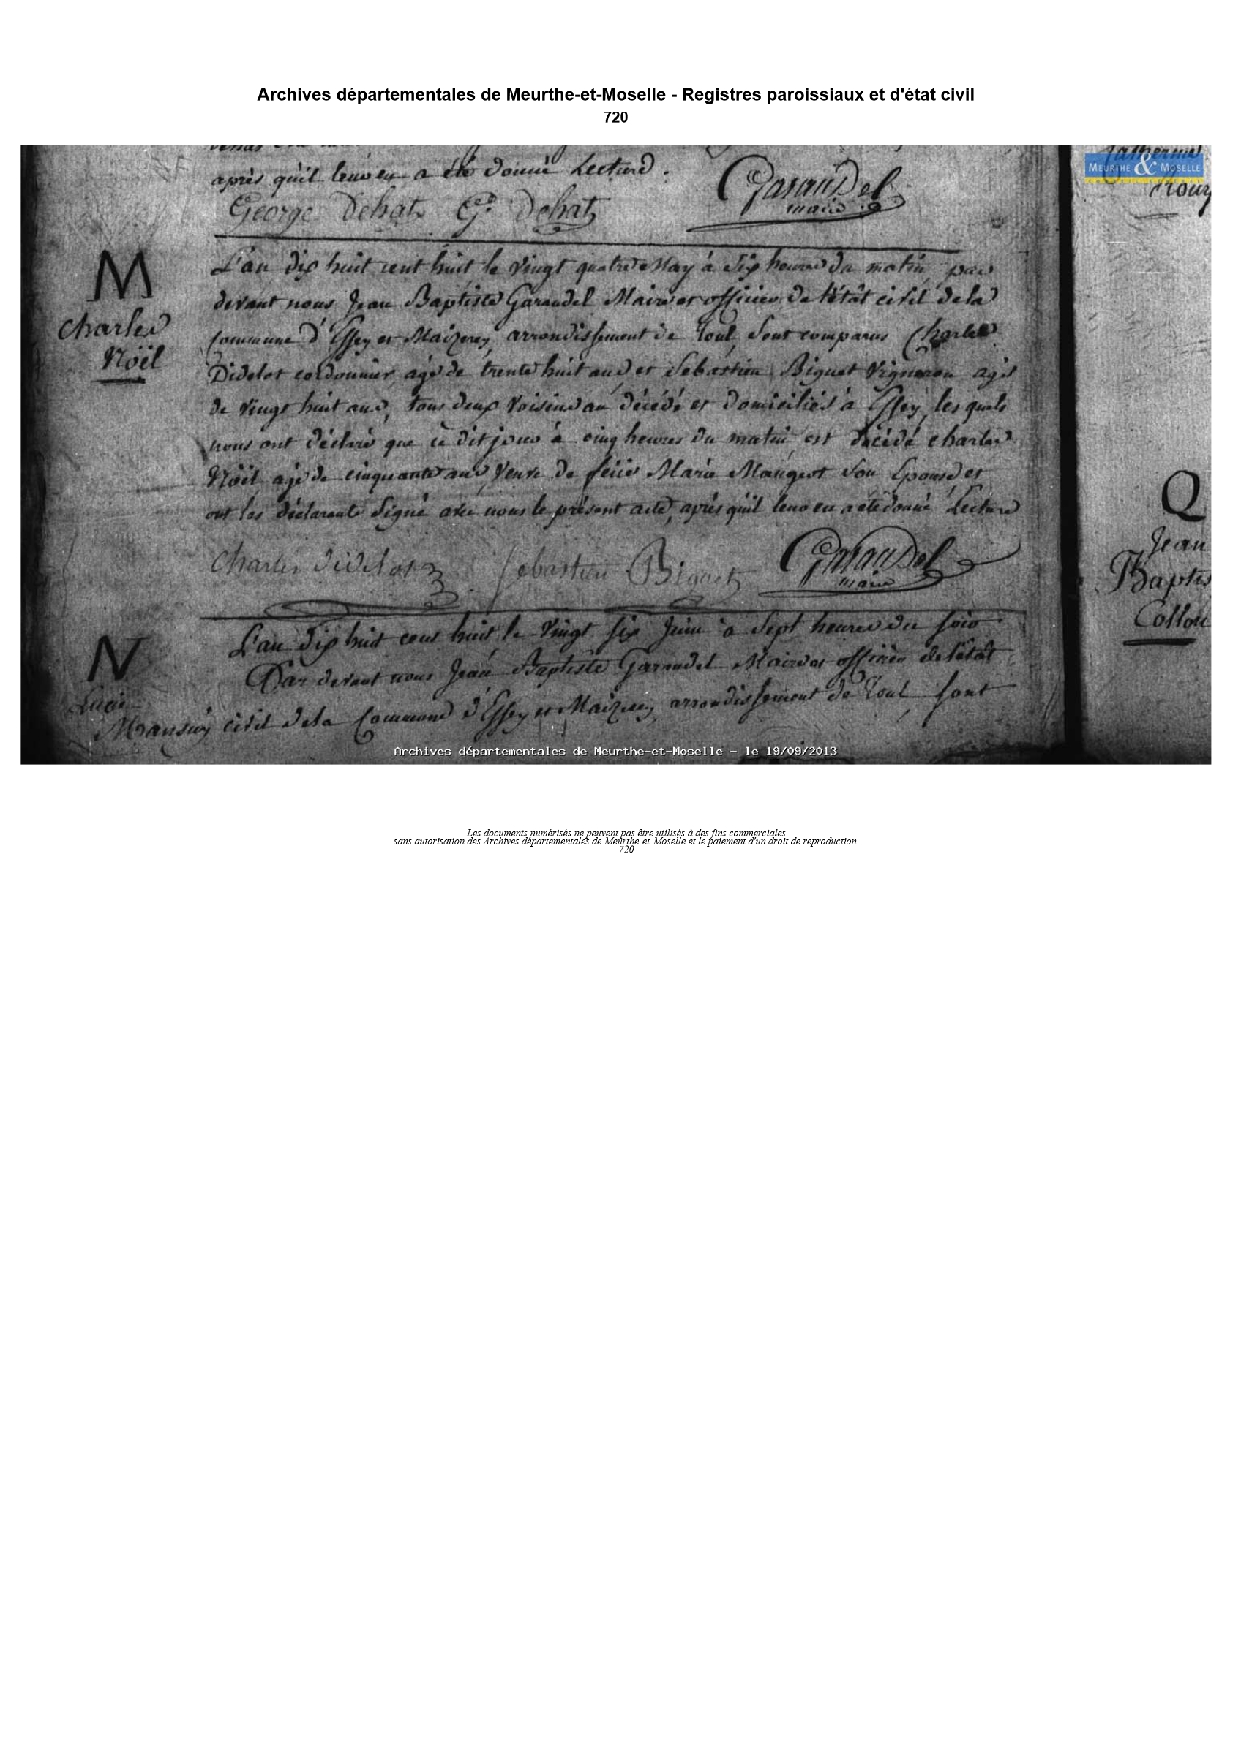 Archives départementales de Meurthe-et-Moselle - Registres paroissiaux et d'état civil
720
après qu'il leur en a été donné Lecture.
George Dehat G. Dehat Garaudel
maire
MEURTHE & MOSELLE
Catherine
Rouy
M
Charles
Noël
L'an dix huit cent huit le vingt quatre May à six heures du matin par
devant nous Jean Baptiste Garaudel Maire et officier de l'état civil de la
commune d'Essey et Maizerey arrondissement de Toul, sont comparus Charles
Didelot cordonnier agé de trente huit ans et Sébastien Biguet Vigneron agé
de vingt huit ans, tous deux voisins au décédé et domiciliés à Essey, les quels
nous ont déclaré que ce dit jour à cinq heures du matin est décédé charles
Noël agé de cinquante ans Veuve de feüe Marie Mangeot son Epouse et
ont les déclarants signé avec nous le présent acte, après qu'il leur en a été donné Lecture
Charles didelot Sebastien Biguet Garaudel
maire
N
L'an dix huit cent huit le vingt six Juin à sept heures du soir
Par devant nous Jean Baptiste Garaudel Maire et officier de l'état
Mansuy civil de la Commune d'Essey et Maizerey arrondissement de Toul, sont
Q
Jean
Baptis
Collot
Archives départementales de Meurthe-et-Moselle - le 19/09/2013
Les documents numérisés ne peuvent pas être utilisés à des fins commerciales
sans autorisation des Archives départementales de Meurthe et Moselle et le paiement d'un droit de reproduction
720